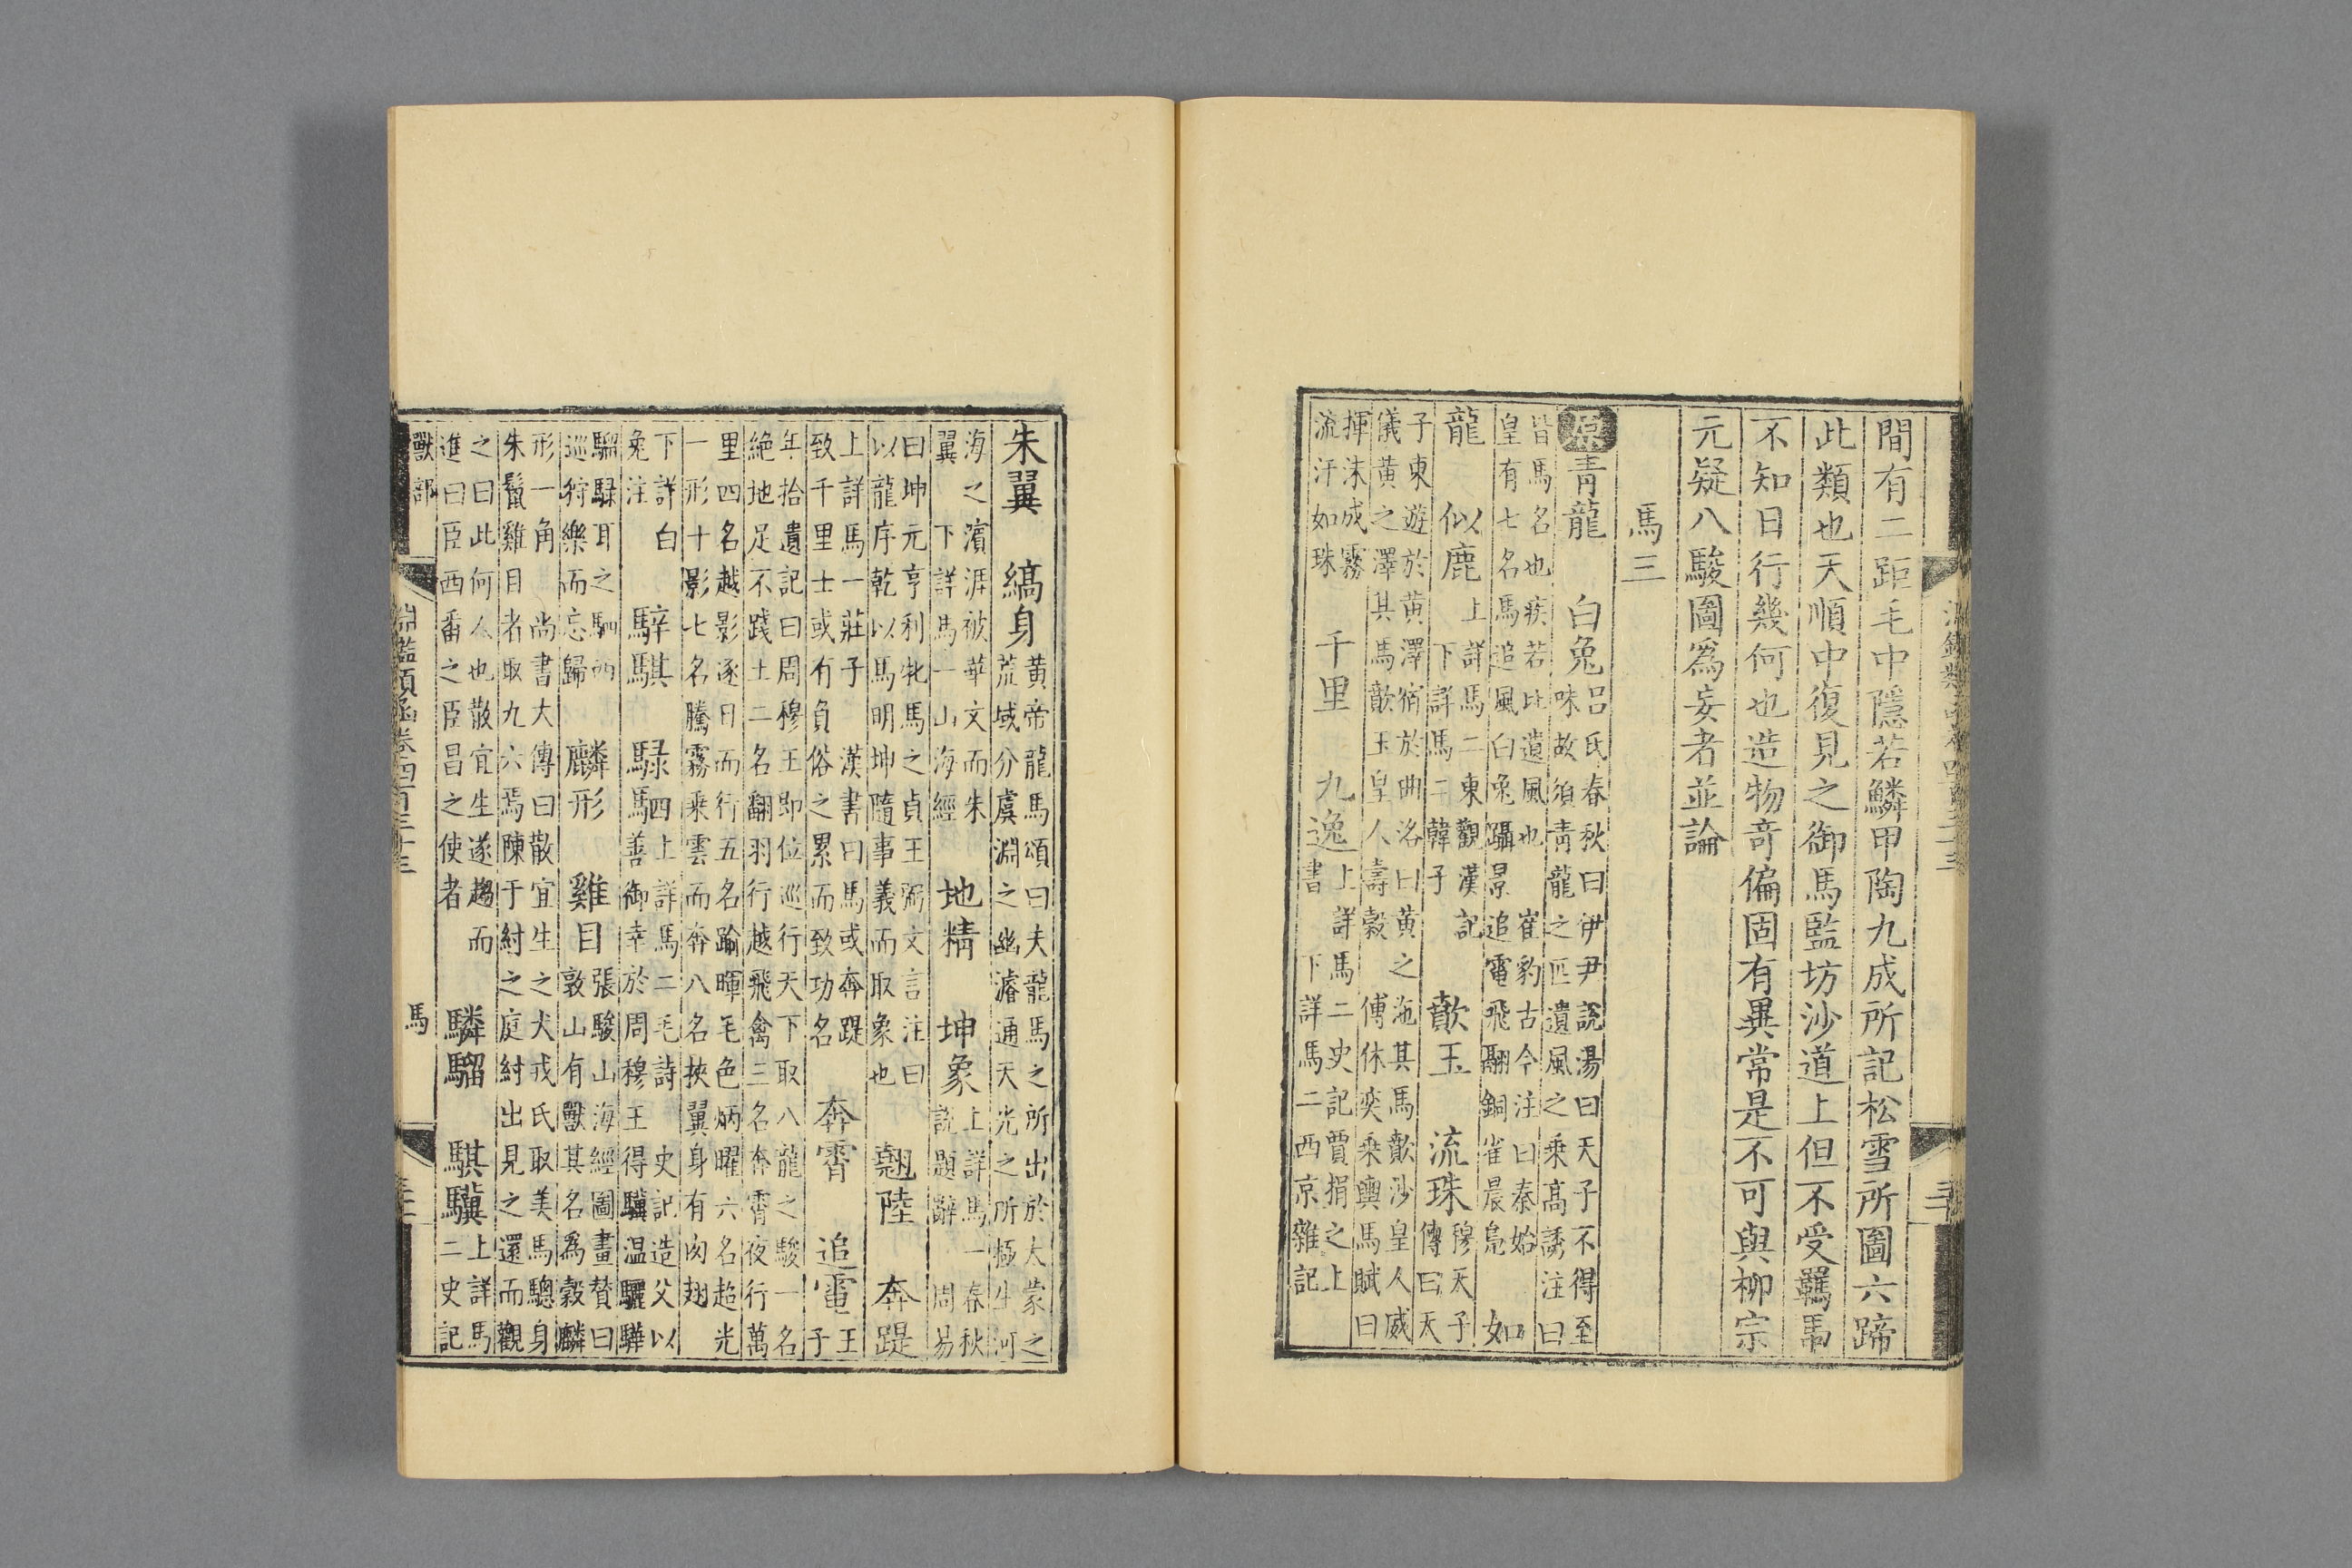 間有二距毛中隱若鱗甲陶九成所記松雪所圖六蹄
此類也天順中復見之御馬監坊沙道上但不受羈馽
不知日行幾何也造物奇偏固有異常是不可與柳宗
元疑八駿圖爲妄者並論
馬三
原青龍 白兔呂氏春秋曰伊尹說湯曰天子不得至
味故須青龍之匹遺風之乘高誘注曰
皆馬名也疾若比遺風也 崔豹古今注曰秦始
皇有七名馬追風白兔躡景追電飛翮銅雀晨鳧 如
龍 似鹿上詳馬二東觀漢記
下詳馬二韓子 歕玉 流珠穆天子
傳曰天
子東遊於黃澤宿於曲洛曰黃之沲其馬歕沙皇人威
儀黃之澤其馬歕玉皇人壽穀 傅休奕乘輿馬賦曰
揮沫成霧
流汗如珠 千里 九逸上詳馬二史記賈捐之上
書 下詳馬二西京雜記
朱翼 縞身黃帝龍馬頌曰夫龍馬之所出於太蒙之
荒域分虞淵之幽濬通天光之所極生河
海之濱涯被華文而朱
翼 下詳馬一山海經 地精 坤象上詳馬一春秋
說題辭 周易
曰坤元亨利牝馬之貞王弼文言注曰
以龍序乾以馬明坤隨事義而取象也 翹陸 奔踶
上詳馬一莊子 漢書曰馬或奔踶
致千里士或有負俗之累而致功名 奔霄 追電王
子
年拾遺記曰周穆王即位巡行天下取八龍之駿一名
絕地足不踐土二名翻羽行越飛禽三名奔霄夜行萬
里四名越影逐日而行五名踰暉毛色炳曜六名超光
一形十影七名騰霧乘雲而奔八名挾翼身有肉翅
下詳白
兔注 騂騏 騄馬四上詳馬二毛詩 史記造父以
善御幸於周穆王得驥溫驪驊
騮騄耳之駟西
巡狩樂而忘歸 麟形 雞目張駿山海經圖畫贊曰
敦山有獸其名爲㝅麟
形一角 尚書大傳曰散宜生之犬戎氏取美馬驄身
朱鬣雞目者取九六焉陳于紂之庭紂出見之還而觀
之曰此何人也散宜生遂趨而
進曰臣西番之臣昌之使者 驎騮 騏驥上詳馬
二史記
獸部 淵鑑類函卷四百三十三 馬